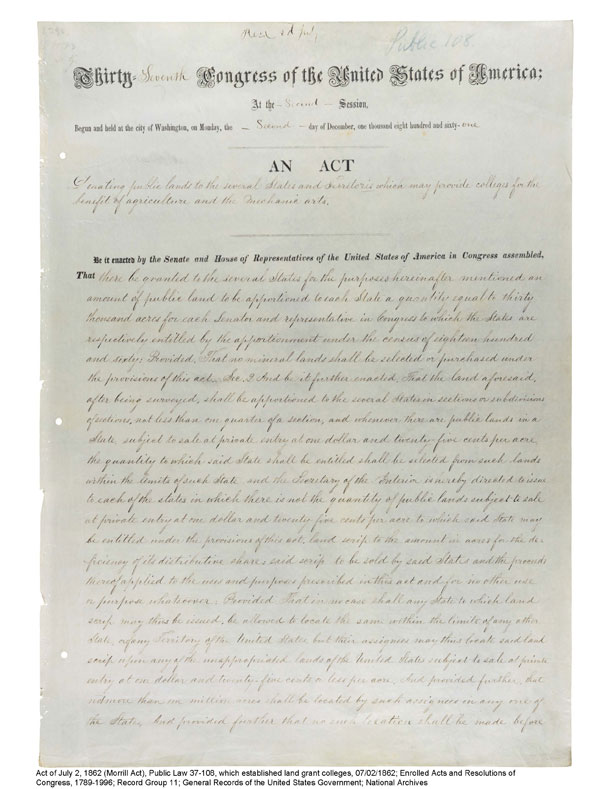 Public 108.
Thirty-Seventh Congress of the United States of America;
At the - Second - Session,
Begun and held at the city of Washington, on Monday, the - Second - day of December, one thousand eight hundred and sixty-one
AN ACT
Donating public lands to the several States and Territories which may provide colleges for the
benefit of agriculture and the Mechanic arts.
Be it enacted by the Senate and House of Representatives of the United States of America in Congress assembled,
That there be granted to the several States for the purposes hereinafter mentioned an
amount of public land to be apportioned to each State a quantity equal to thirty
thousand acres for each Senator and representative in Congress to which the States are
respectively entitled by the apportionment under the census of eighteen hundred
and sixty: Provided, That no mineral lands shall be selected or purchased under
the provisions of this act. Sec. 2 And be it further enacted, That the land aforesaid,
after being surveyed, shall be apportioned to the several States in sections or subdivisions
of sections, not less than one quarter of a section, and whenever there are public lands in a
State subject to sale at private entry at one dollar and twenty-five cents per acre,
the quantity to which said State shall be entitled shall be selected from such lands
within the limits of such State and the Secretary of the Interior is hereby directed to issue
to each of the states in which there is not the quantity of public lands subject to sale
at private entry at one dollar and twenty five cents per acre to which said State may
be entitled under the provisions of this act, land scrip to the amount in acres for the de-
ficiency of its distributive share; said scrip to be sold by said States and the proceeds
thereof applied to the uses and purposes prescribed in this act and for no other use
or purpose whatsoever: Provided That in no case shall any State to which land
scrip may thus be issued, be allowed to locate the same within the limits of any other
State, or of any Territory of the United States but their assignees may thus locate said land
scrip upon any of the unappropriated lands of the United States subject to sale at private
entry at one dollar and twenty-five cents or less per acre: And provided further, that
not more than one million acres shall be located by such assignees in any one of
the States: And provided further that no such location shall be made before
Act of July 2, 1862 (Morrill Act), Public Law 37-108, which established land grant colleges, 07/02/1862; Enrolled Acts and Resolutions of
Congress, 1789-1996; Record Group 11; General Records of the United States Government; National Archives